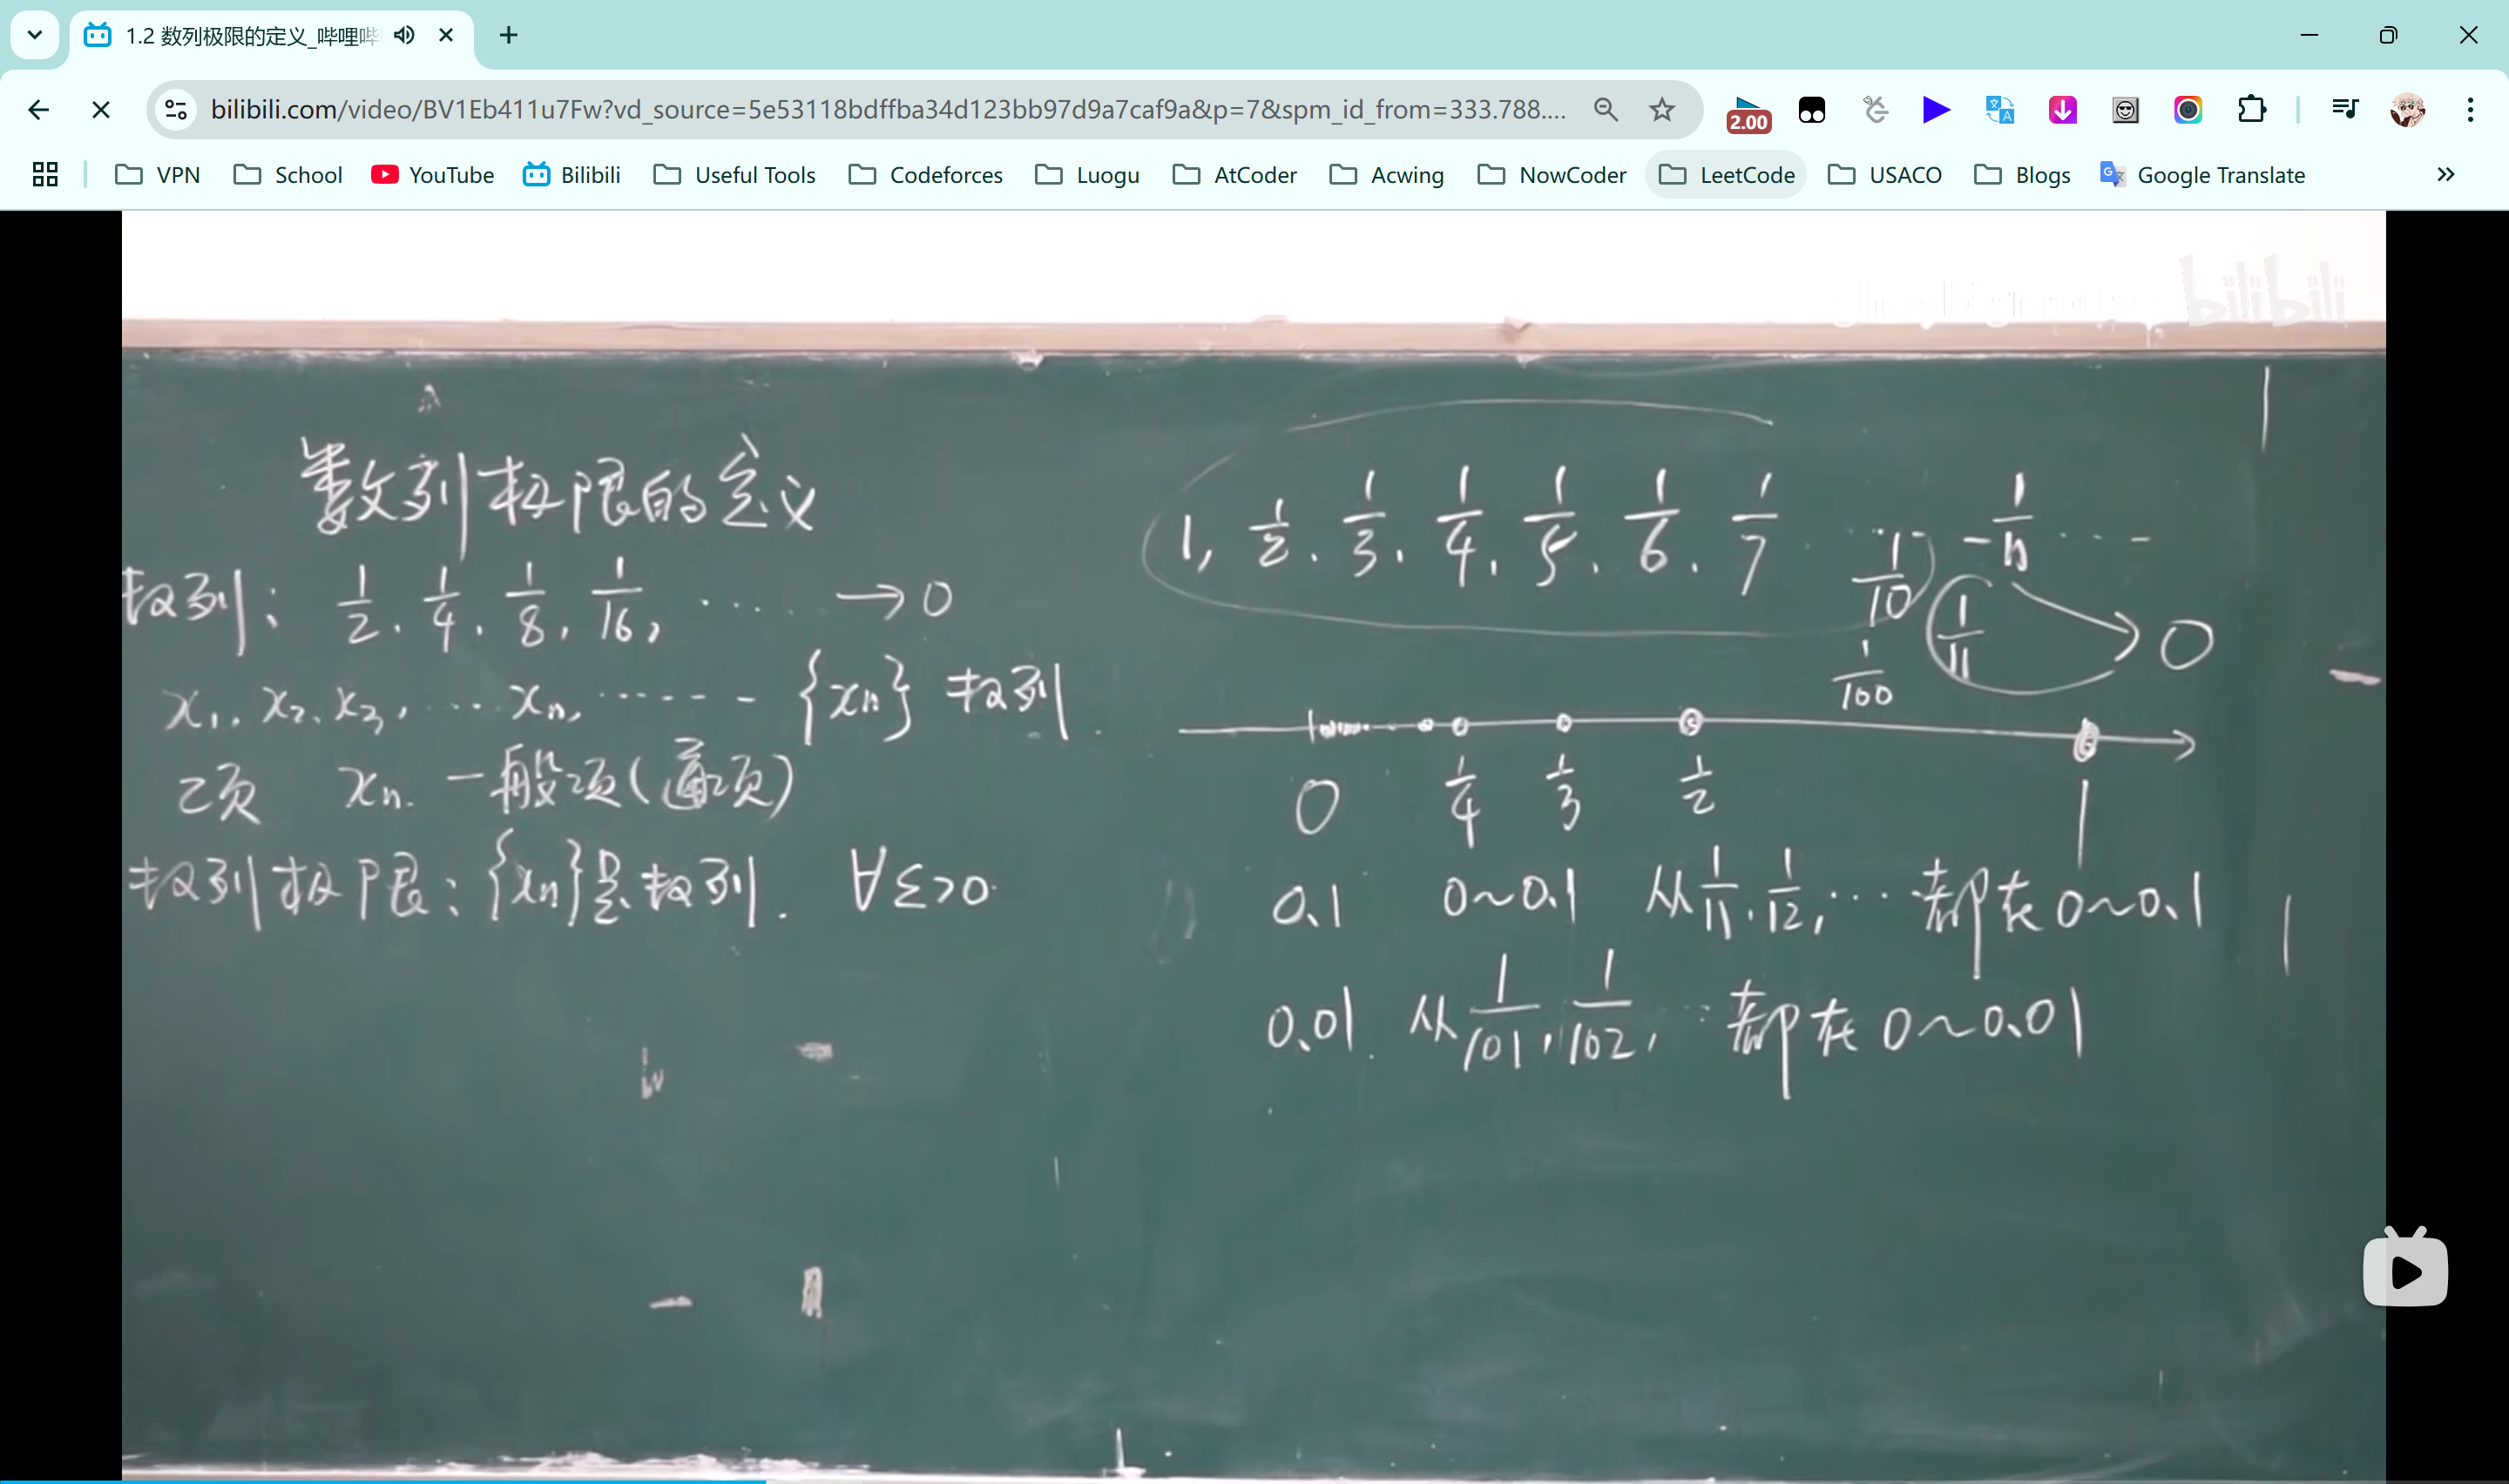 1.2 数列极限的定义_哔哩哔
bilibili.com/video/BV1Eb411u7Fw?vd_source=5e53118bdffba34d123bb97d9a7caf9a&p=7&spm_id_from=333.788....
2.00
VPN School YouTube Bilibili Useful Tools Codeforces Luogu AtCoder Acwing NowCoder LeetCode USACO Blogs Google Translate
bilibili
数列极限的定义
数列: 1/2, 1/4, 1/8, 1/16, ···· → 0
x₁, x₂, x₃, ··· xₙ, ······ {xₙ} 数列.
项 xₙ. 一般项(通项)
数列极限: {xₙ}是数列. ∀ε>0
1, 1/2, 1/3, 1/4, 1/5, 1/6, 1/7 ··· 1/10 1/n ···
1/11 → 0
1/100
0 1/4 1/3 1/2 1
0.1 0~0.1 从1/11, 1/12, ··· 都在0~0.1
0.01 从1/101, 1/102, ··· 都在0~0.01